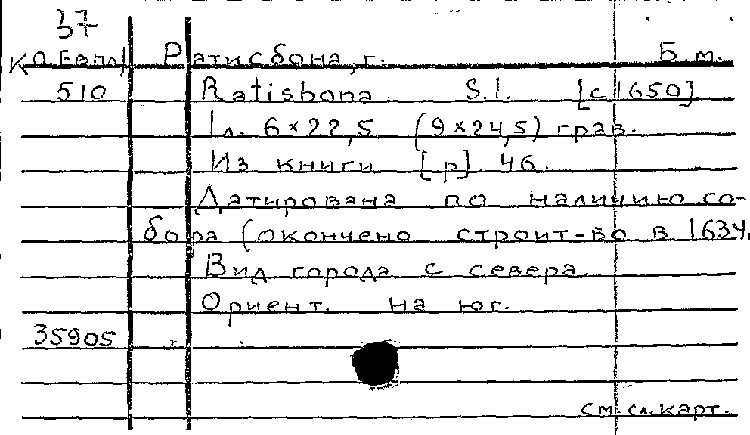 37
КО Евпл Ратисбона, г. Б. м.
510 Ratisbona S.l. [c 1650]
1 л. 6×22,5 (9×24,5) грав.
Из книги [p] 46.
Датирована по наличию со-
бора (окончено строит-во в 1634.
Вид города с севера
Ориент. на юг.
35905
см. сл. карт.